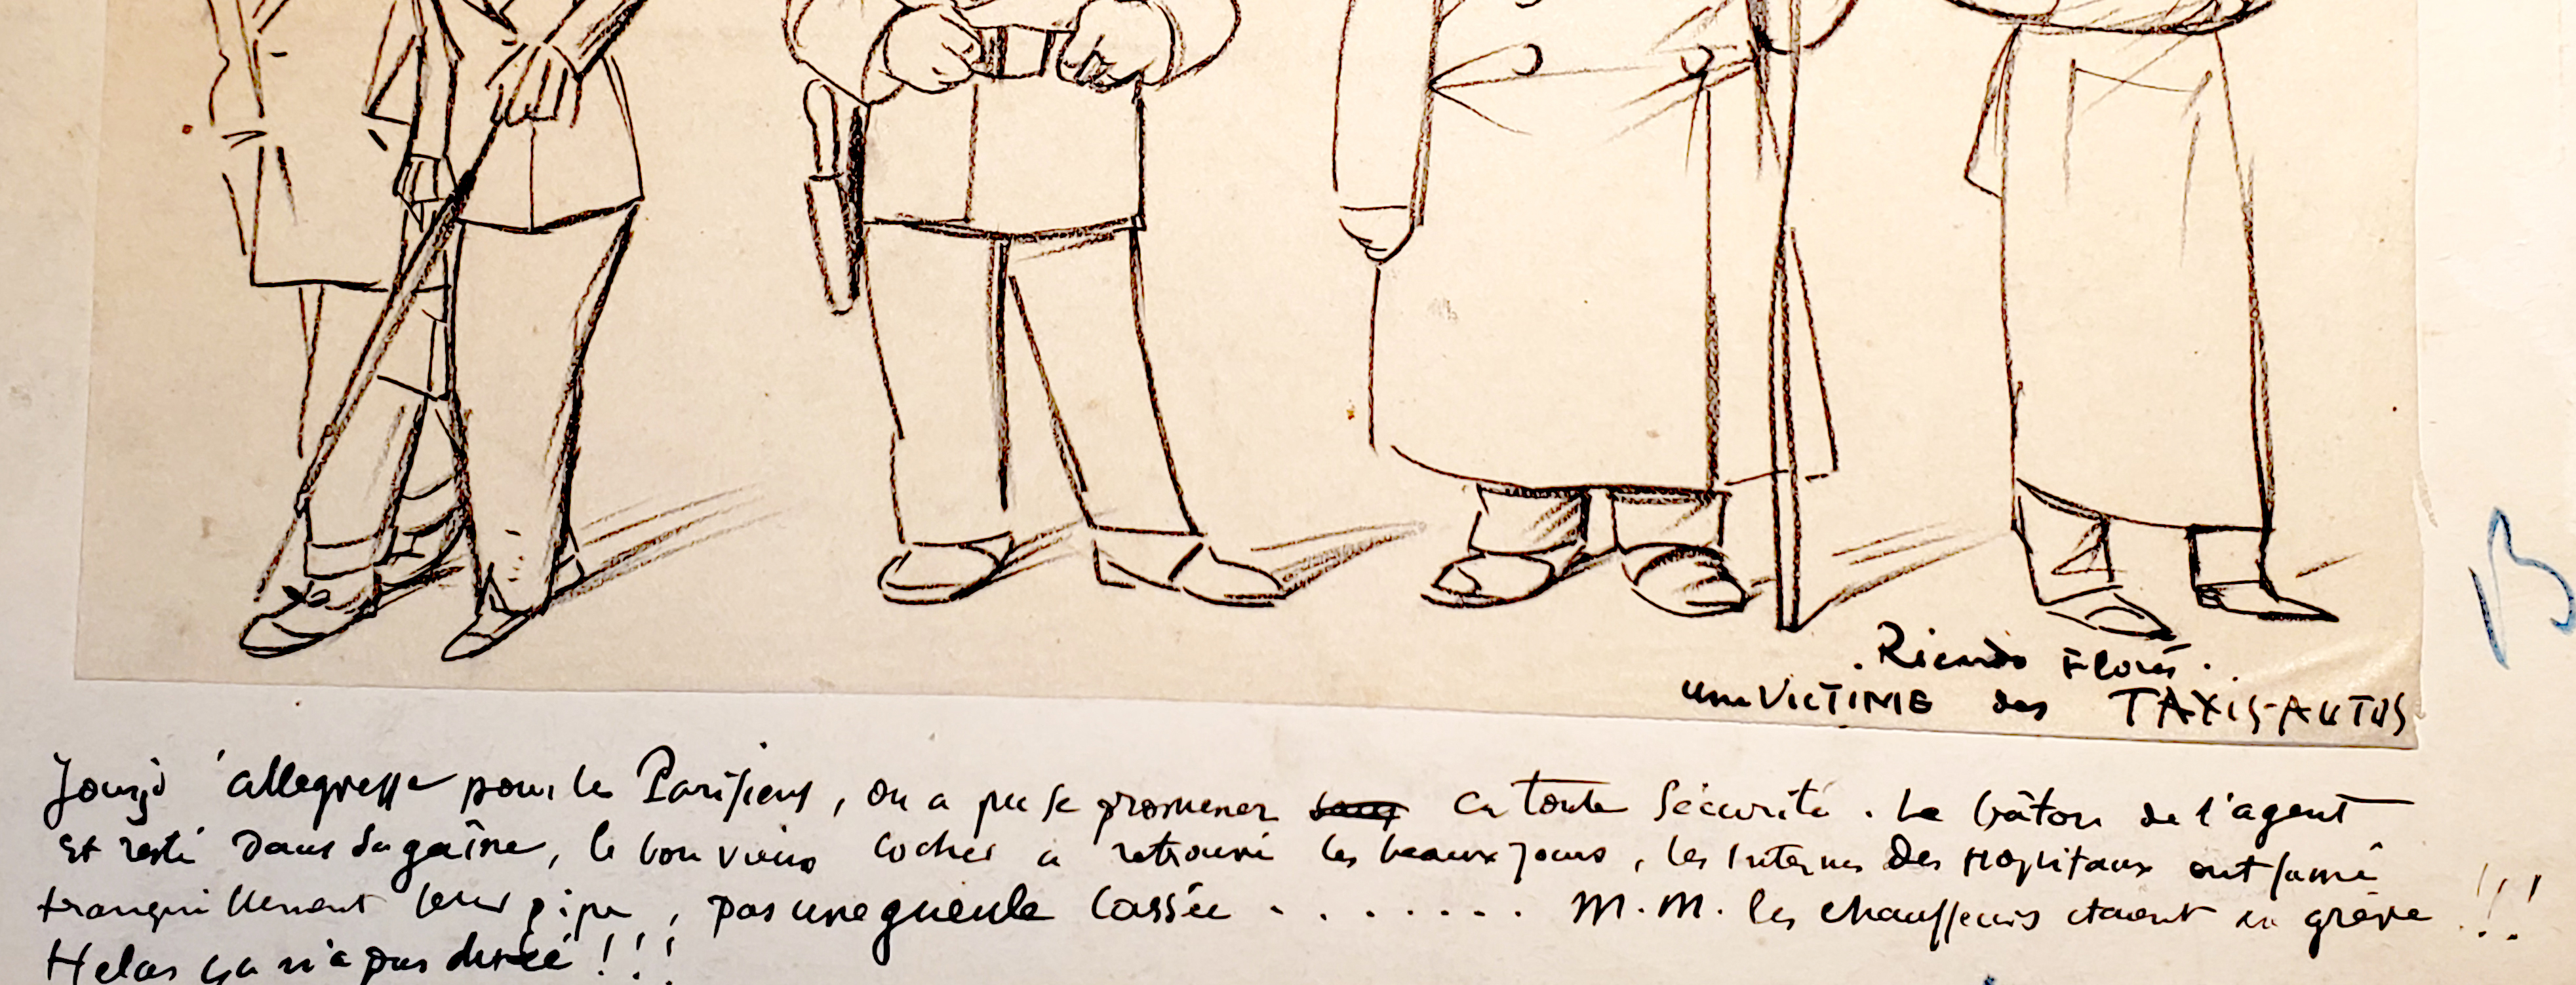 . Ricardo Florès .
une VICTIME des TAXIS-AUTOS
Jour d'allegresse pour les Parisiens, on a pu se promener en toute sécurité. Le bâton de l'agent
est resté dans sa gaîne, le bon vieux cocher a retrouvé les beaux jours, les internes des Hopitaux ont fumé
tranquillement leur pipe, pas une gueule cassée ........ M.M. les chauffeurs etaient en grève !!!
Helas ça n'a pas duré !!!
B